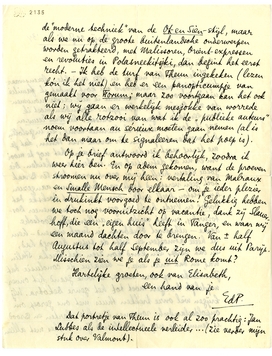 de "moderne techniek" van de Ot-en-Sien-stijl, maar
als we nu op de groote buitenlandsche onderwerpen
worden getrakteerd, met Malissoren, Orient-expressen
en revoluties in dan begint het eerst
recht. – Ik heb de turf van Theun ingekeken (lezen
kon ik het niet) en heb er een panopticumpje van
gemaakt voor Forum; maar zoo voortgaan kan het ook
niet: wij gaan er werkelijk mesjokke van worden
als wij alle rotzooi van wat ik de "publieke auteurs"
noem voortaan au sérieux moeten gaan nemen (al is
het dan maar om te signaleeren dat het poep is).
Op je brief antwoord ik behoorlijk, zoodra ik
weer hier ben. In op adem gekomen, want de proeven
stroomen nu over mij heen: vertaling van Malraux
en Smalle Mensch door elkaar – om je ieder plezier
in drukinkt voorgoed te ontnemen! Gelukkig hebben
we toch nog vooruitzicht op vacantie, dank zij
hoff, die een "eigen huis" heeft in Tanger, en waar wij
een maand dachten door te brengen. Van 2 half
Augustus tot half September zijn we dus uit Parijs.
Misschien zien we je als je uit Rome komt?
Hartelijke groeten, ook van Elisabeth,
een hand van je
EdP.
Dat portretje van Theun is ook al zoo prachtig: Jan
Lubbes als de intellectueele verleider ... (zie verder mijn
stuk over Valmont).